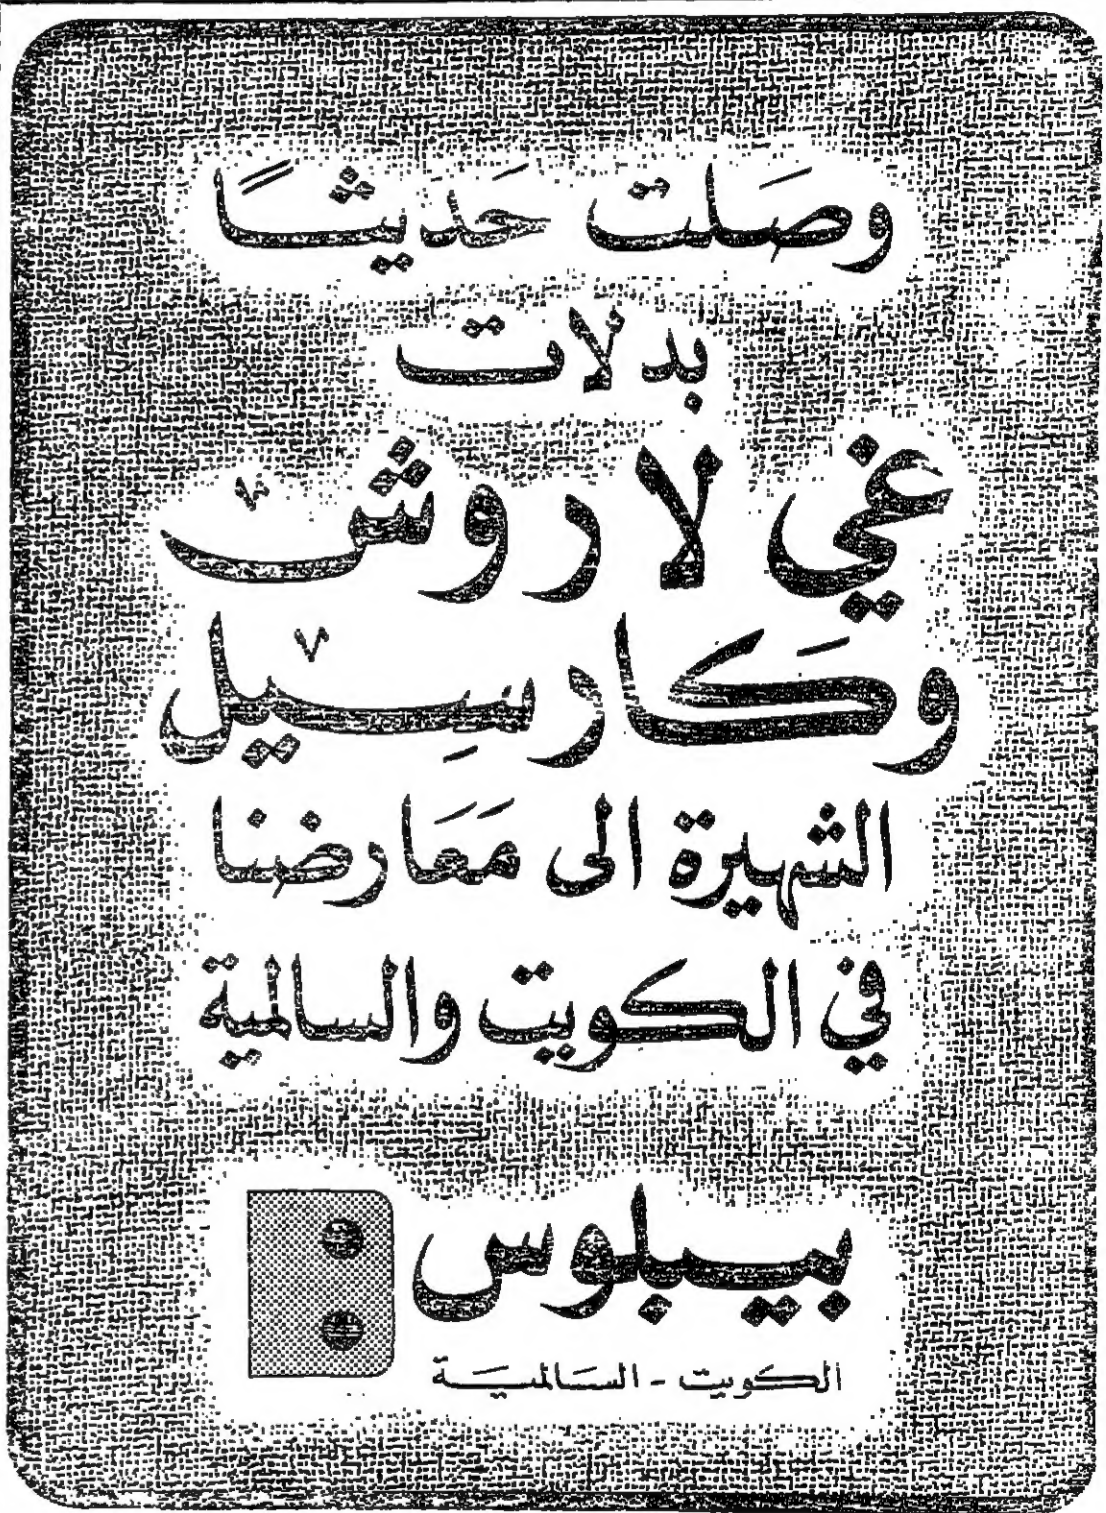 وصَلت حَديثًا
بدلات
غي لاروش
وكَارسِيل
الشهيرة الى مَعَارضنا
في الكويت والسالمية
بيبلوس
الكويت - السَالميَة